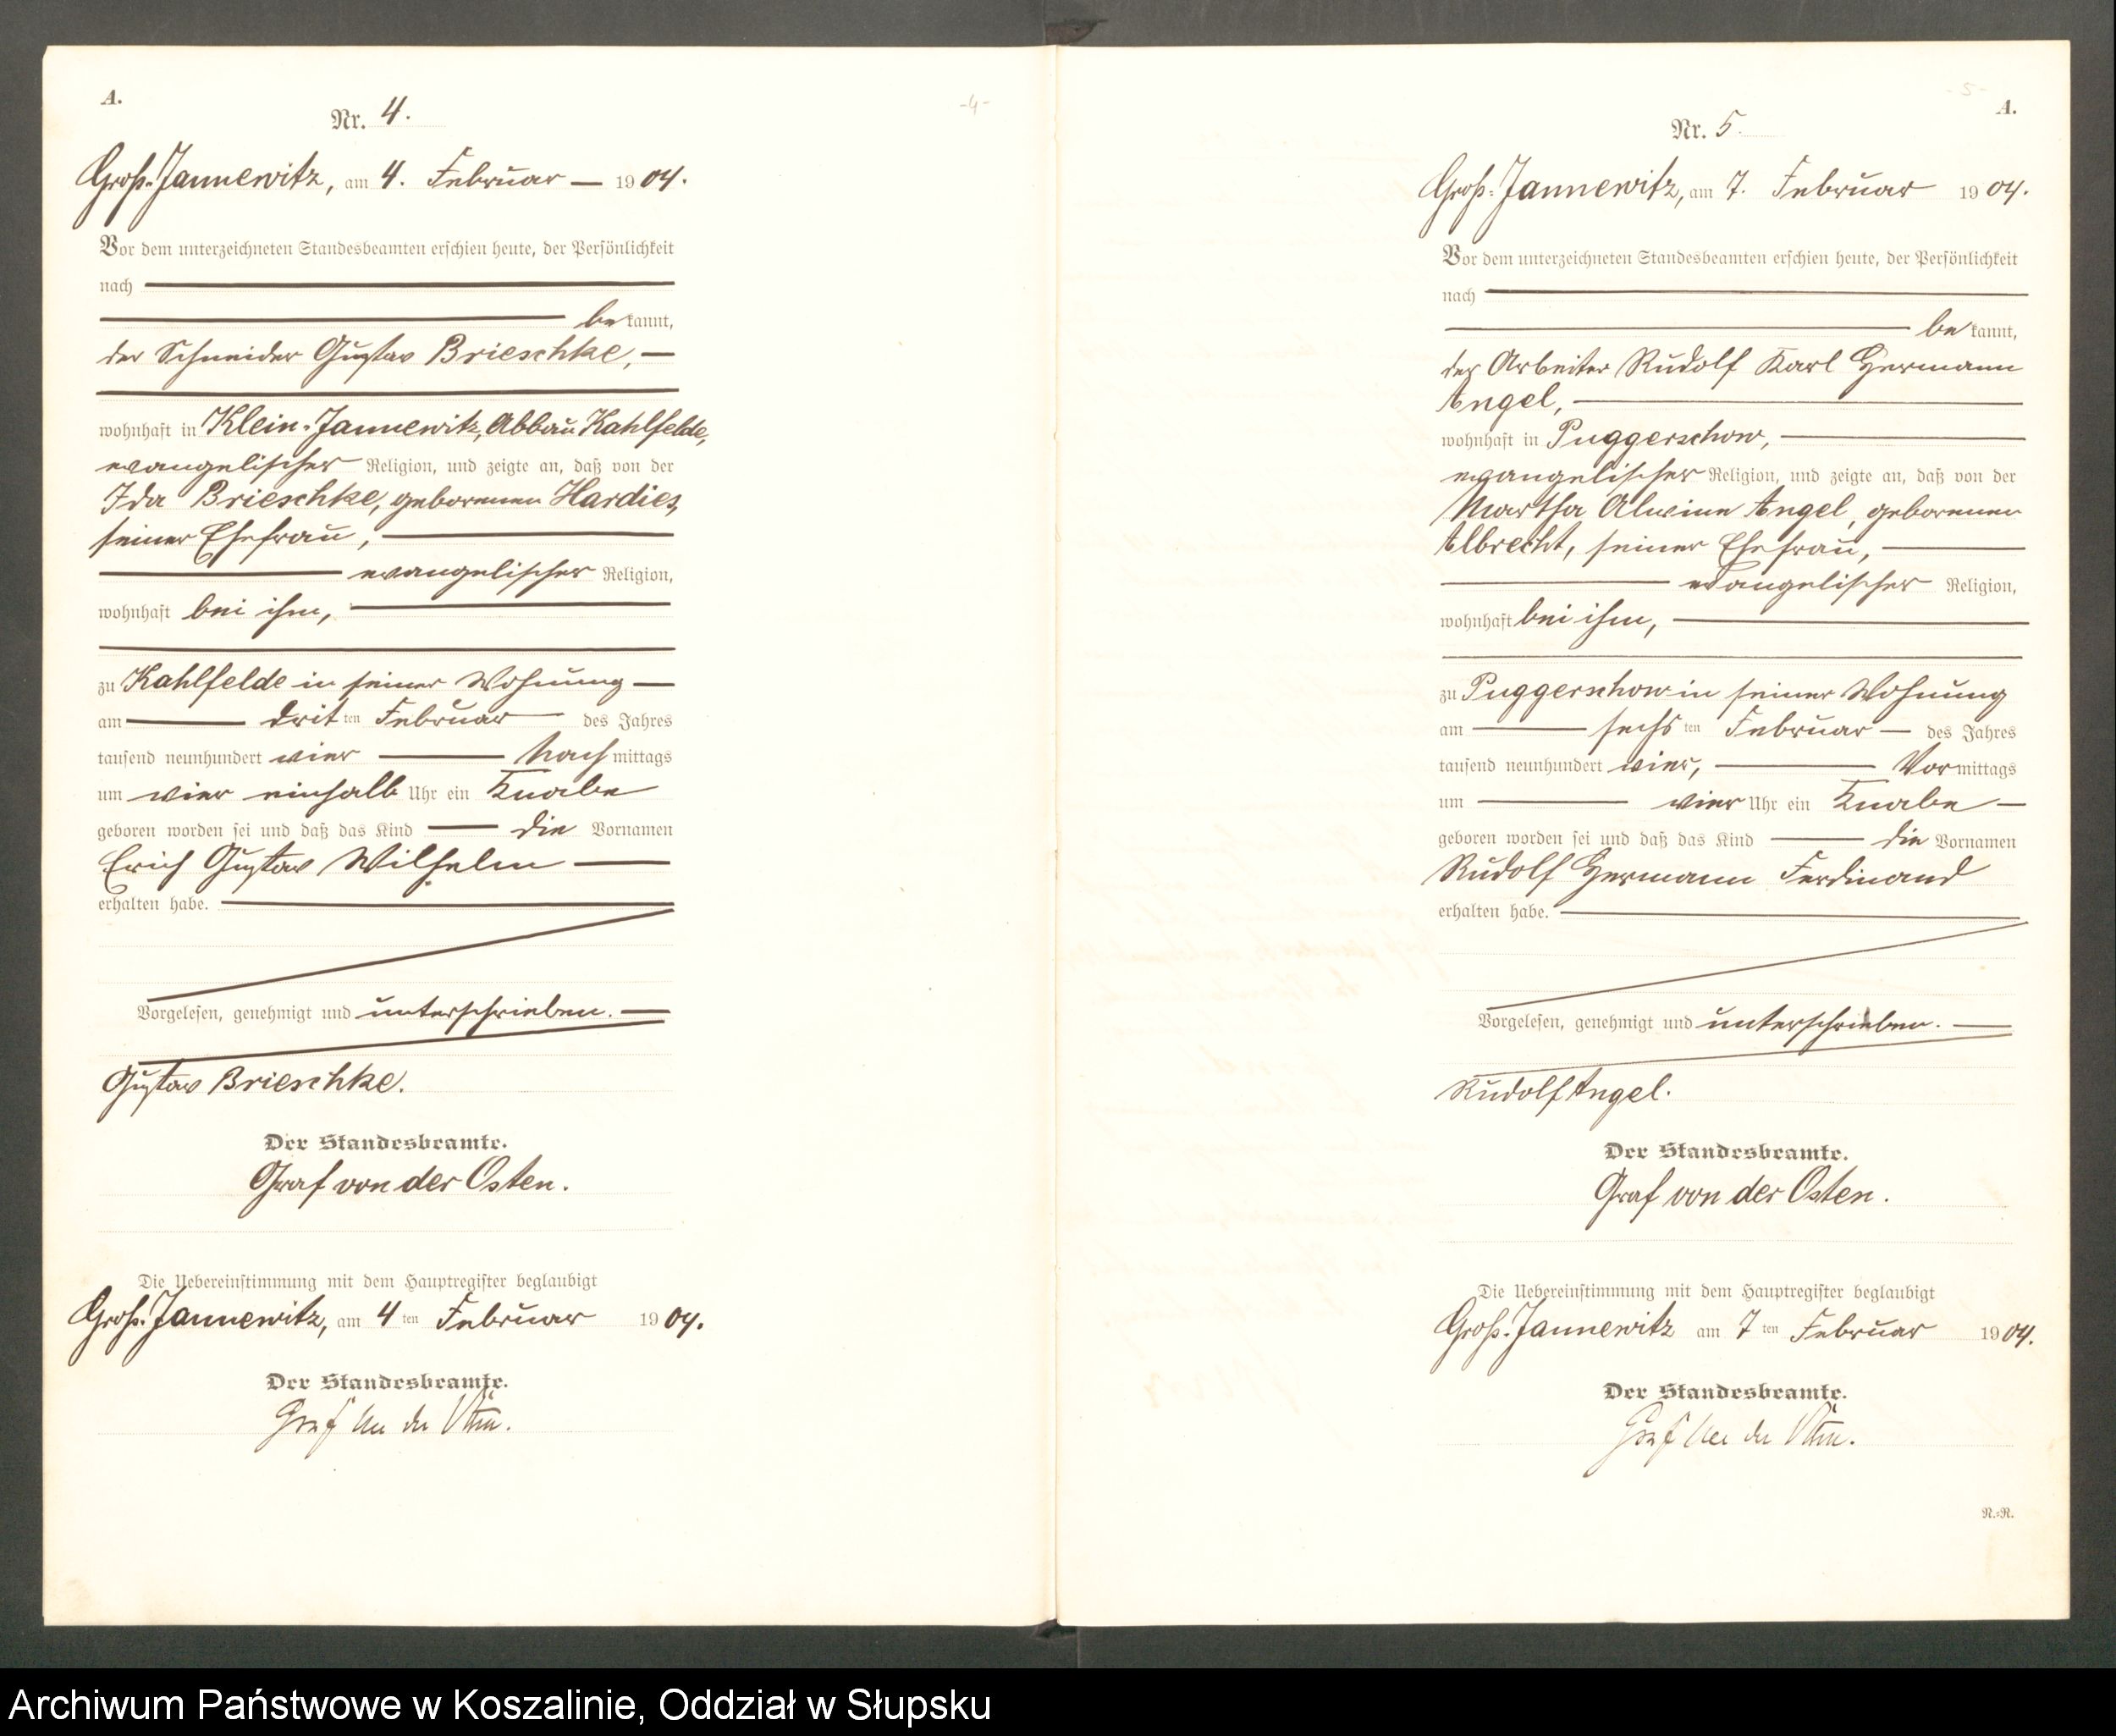 A.
Nr. 4.
Groß-Jannewitz, am 4. Februar 1904.
Vor dem unterzeichneten Standesbeamten erschien heute, der Persönlichkeit
nach
bekannt,
der Schneider Gustav Brieschke,
wohnhaft in Klein-Jannewitz, Abbau Kahlfelde,
evangelischer Religion, und zeigte an, daß von der
Ida Brieschke, geborenen Hardies,
seiner Ehefrau,
evangelischer Religion,
wohnhaft bei ihm,
zu Kahlfelde in seiner Wohnung
am dritten Februar des Jahres
tausend neunhundert vier Nachmittags
um vier einhalb Uhr ein Knabe
geboren worden sei und daß das Kind die Vornamen
Erich Gustav Wilhelm
erhalten habe.
Vorgelesen, genehmigt und unterschrieben.
Gustav Brieschke.
Der Standesbeamte.
Graf von der Osten.
Die Uebereinstimmung mit dem Hauptregister beglaubigt
Groß-Jannewitz, am 4ten Februar 1904.
Der Standesbeamte.
Graf von der Osten.
-4-
-5-
A.
Nr. 5.
Groß-Jannewitz, am 7. Februar 1904.
Vor dem unterzeichneten Standesbeamten erschien heute, der Persönlichkeit
nach
bekannt,
der Arbeiter Rudolf Karl Hermann
Angel,
wohnhaft in Puggerschow,
evangelischer Religion, und zeigte an, daß von der
Martha Alwine Angel, geborenen
Albrecht, seiner Ehefrau,
evangelischer Religion,
wohnhaft bei ihm,
zu Puggerschow in seiner Wohnung
am sechsten Februar des Jahres
tausend neunhundert vier, Vormittags
um vier Uhr ein Knabe
geboren worden sei und daß das Kind die Vornamen
Rudolf Hermann Ferdinand
erhalten habe.
Vorgelesen, genehmigt und unterschrieben.
Rudolf Angel.
Der Standesbeamte.
Graf von der Osten.
Die Uebereinstimmung mit dem Hauptregister beglaubigt
Groß-Jannewitz am 7ten Februar 1904.
Der Standesbeamte.
Graf von der Osten.
N.=R.
Archiwum Państwowe w Koszalinie, Oddział w Słupsku